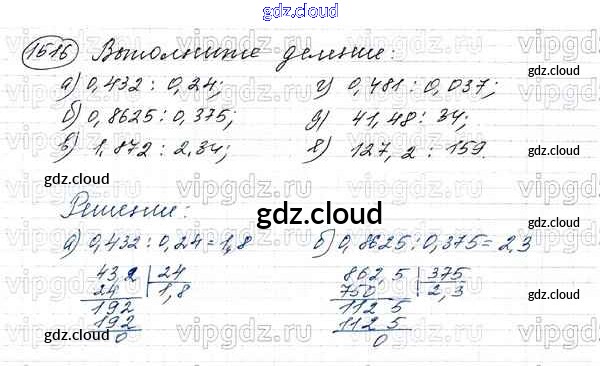 gdz.cloud
1516 Выполните деление:
а) 0,432 : 0,24; г) 0,481 : 0,037;
б) 0,8625 : 0,375; д) 41,48 : 34;
в) 1,872 : 2,34; е) 127,2 : 159.
gdz.cloud
gdz.cloud
gdz.cloud
Решение:
gdz.cloud
а) 0,432 : 0,24 = 1,8 б) 0,8625 : 0,375 = 2,3
43,2 | 24 862,5 | 375
24 | 1,8 750 | 2,3
192 112 5
192 112 5
0 0
gdz.cloud
gdz.cloud
vipgdz.ru